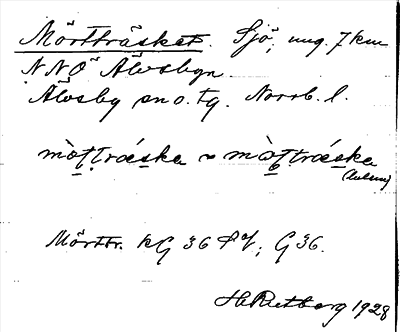 Mörtträsket. Sjö, ung. 7 km
NNO Älvsbyn.
Älvsby sn o. tg. Norrb. l.
mòt̲träs̲ka ~ mòt̲träs̲ka
Mörttr. kG 36 Pf; G 36.
H Rutberg 1928